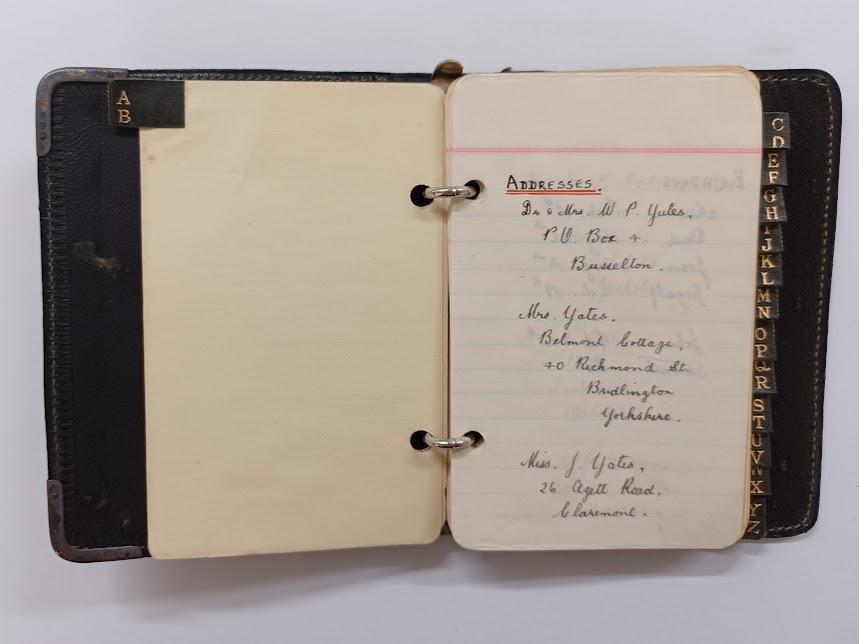 A
B
ADDRESSES.
Dr & Mrs. W. P. Yates,
P.O. Box 4.
Busselton.
Mrs Yates.
Belmont Cottage,
40 Richmond St.
Bridlington
Yorkshire.
Miss. J. Yates,
26 Agett Road,
Claremont.
C
D
E
F
G
H
I
J
K
L
M
N
O
P
Q
R
S
T
U
V
W
X
Y
Z